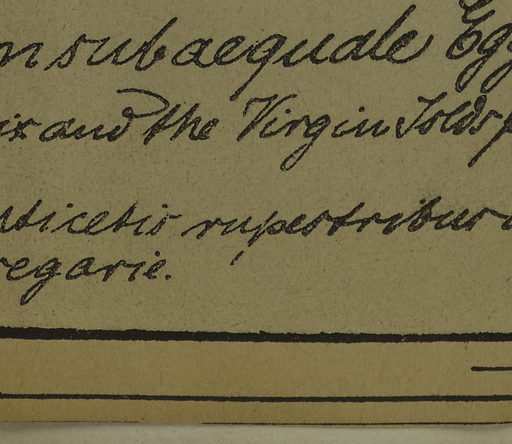 n subaequale Egg
ix and the Virgin Islds
uticetis rupestribus
regarie.